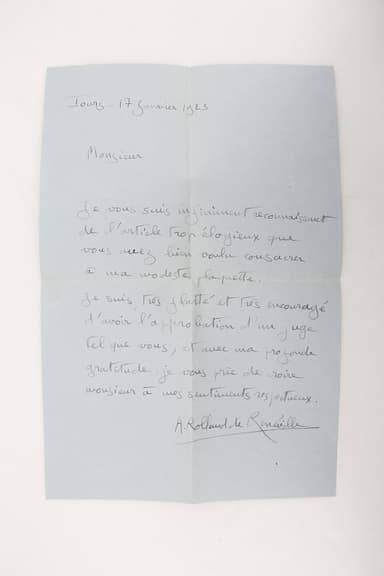 Tours - 17 Janvier 1923
Monsieur
Je vous suis infiniment reconnaissant
de l'article trop élogieux que
vous avez bien voulu consacrer
à ma modeste plaquette.
Je suis très flatté et très encouragé
d'avoir l'approbation d'un juge
tel que vous, et avec ma profonde
gratitude je vous prie de croire
monsieur à mes sentiments respectueux.
A. Rolland de Renéville